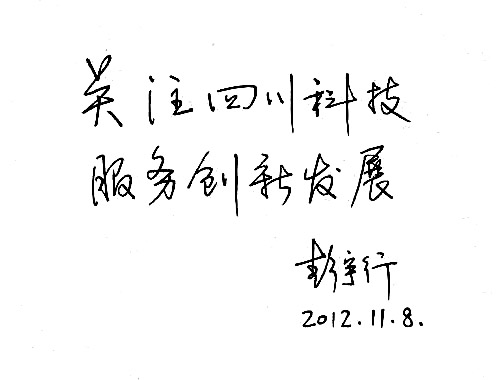 关注四川科技
服务创新发展
彭宇行
2012.11.8.